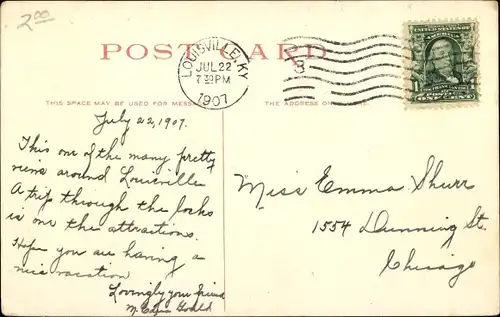 2.00
POST CARD
LOUISVILLE, KY.
JUL 22
7 30 PM
1907
3
UNITED STATES OF AMERICA
1 ONE CENT 1
THIS SPACE MAY BE USED FOR MESS
THE ADDRESS ON
July 22, 1907.
This one of the many pretty
views around Louisville
A trip through the locks
is one the attractions.
Hope you are having a
nice vacation
Lovingly your friend
M.
Miss Emma Shurr
1554 Dunning St.
Chicago